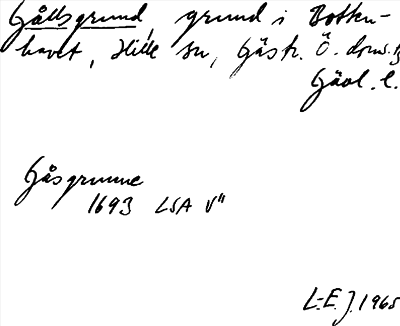 Gåltsgrund, grund i Botten-
havet, Hille sn, Gästr. Ö. doms.
Gävl. l.
Gåsgrunne
1693 LSA V"
L-E. J. 1965